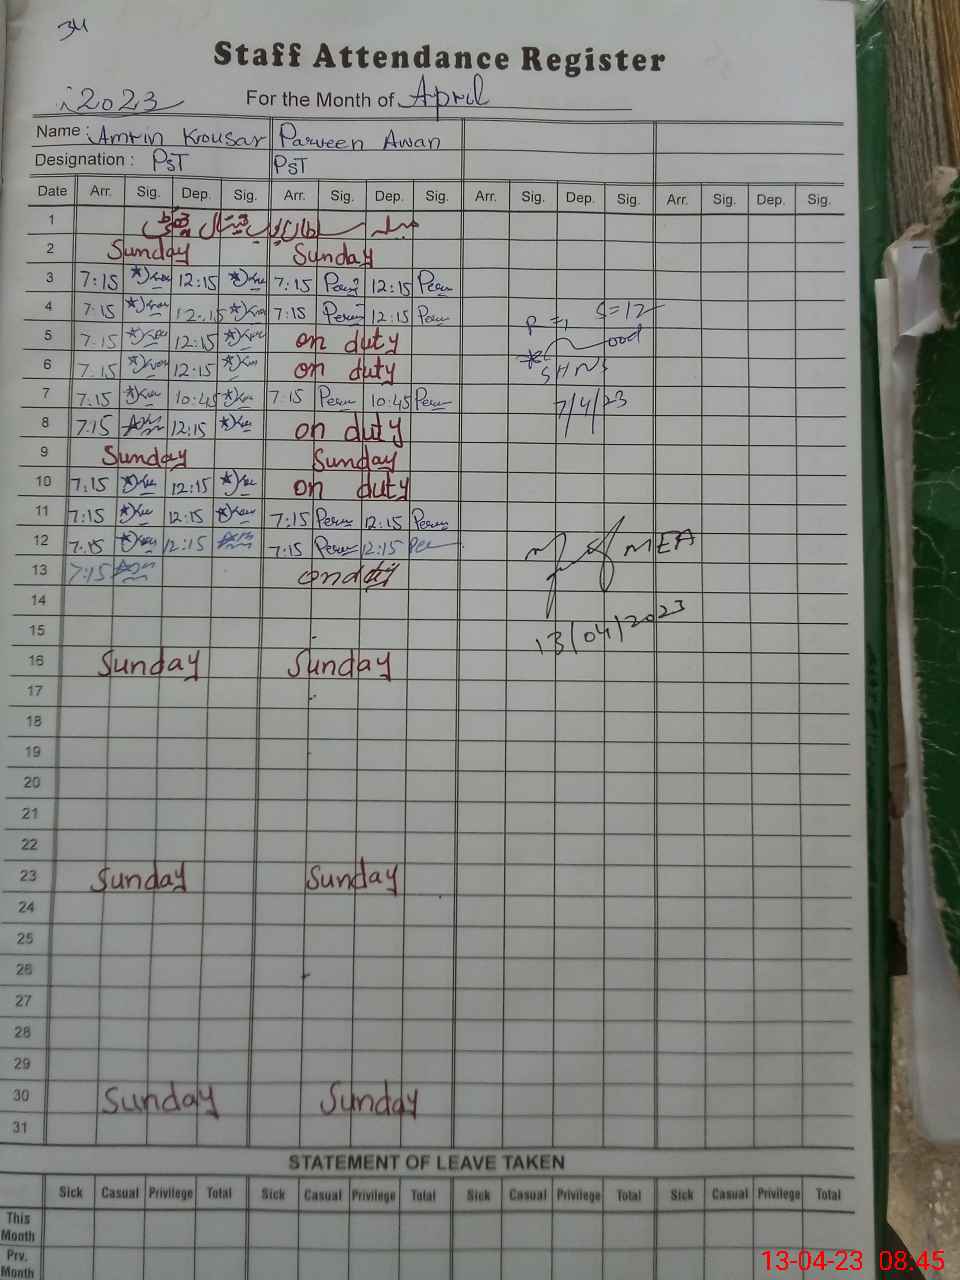 34
Staff Attendance Register
2023 For the Month of April
Name : Amrin Kousar Parveen Awan
Designation : PST PST
Date Arr. Sig. Dep. Sig. Arr. Sig. Dep. Sig. Arr. Sig. Dep. Sig. Arr. Sig. Dep. Sig.
1
2 Sunday Sunday
3 7:15 12:15 7:15 12:15
4 7:15 12:15 7:15 12:15
S=12
5 7:15 12:15 on duty
6 7:15 12:15 on duty
7 7:15 10:45 7:15 10:45 7/4/23
8 7:15 12:15 on duty
9 Sunday Sunday
10 7:15 12:15 on duty
11 7:15 12:15 7:15 12:15
12 7:15 12:15 7:15 12:15 MEA
13 7:15
14
15 13/04/2023
16 Sunday Sunday
17
18
19
20
21
22
23 Sunday Sunday
24
25
26
27
28
29
30 Sunday Sunday
31
STATEMENT OF LEAVE TAKEN
Sick Casual Privilege Total Sick Casual Privilege Total Sick Casual Privilege Total Sick Casual Privilege Total
This Month
Prv. Month
13-04-23 08.45